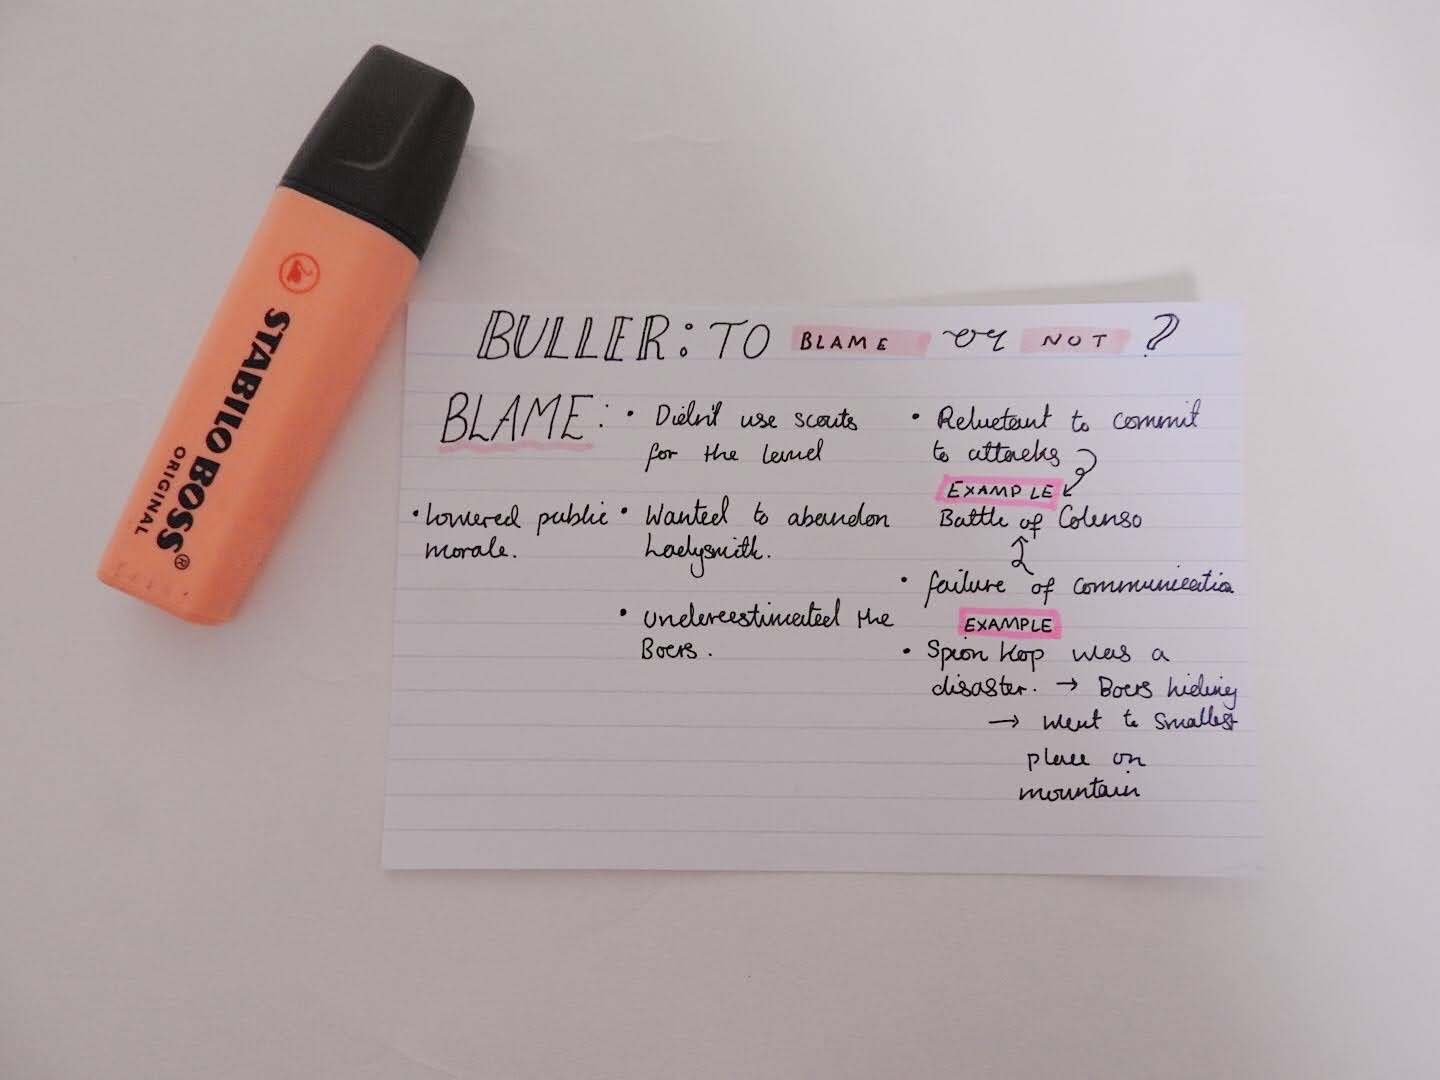 STABILO BOSS®
ORIGINAL
BULLER: TO BLAME or NOT ?
BLAME:
• Didn't use scouts
for the land
• Lowered public
morale.
• Wanted to abandon
Ladysmith.
• Underestimated the
Boers.
• Reluctant to commit
to attacks
EXAMPLE
Battle of Colenso
• failure of communication
EXAMPLE
• Spion Kop was a
disaster. → Boers hiding
→ went to smallest
place on
mountain